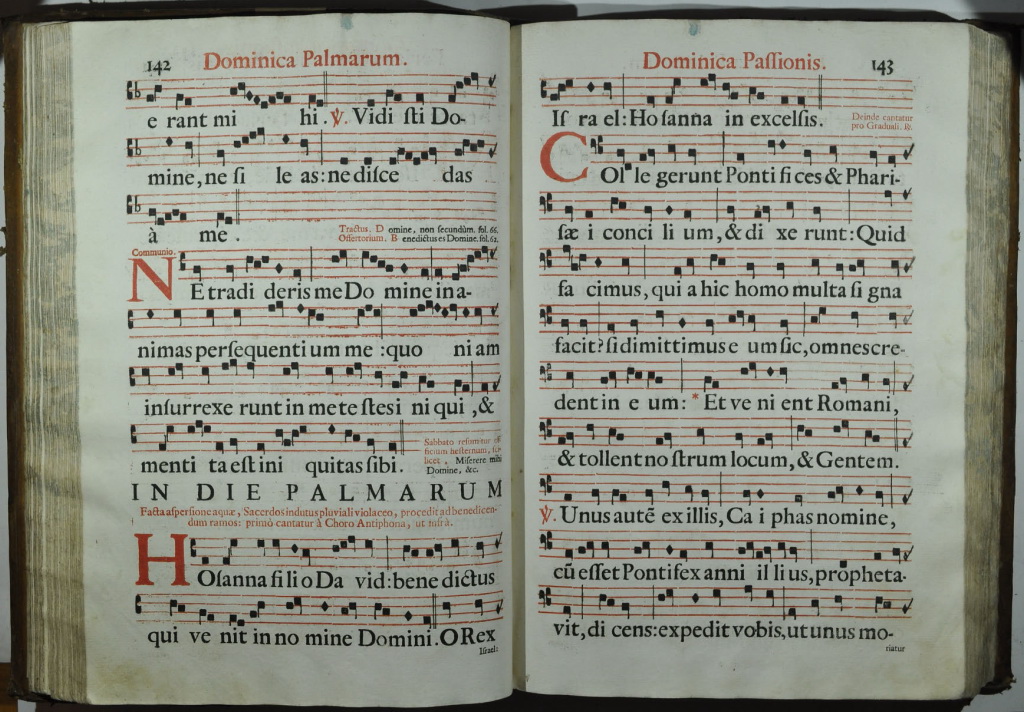 142 Dominica Palmarum.
e rant mi hi. ℣. Vidi sti Do-
mine, ne si le as: ne disce das
à me.
Tractus. D omine, non secundùm. fol. 66.
Offertorium. B enedictus es Domine. fol. 62.
Communio.
NE tradi deris me Do mine in a-
nimas persequenti um me: quo ni am
insurrexe runt in me te stesi ni qui, &
menti ta est ini quitas sibi.
Sabbato resumitur of
ficium hesternum, sci
licet, Miserere mihi
Domine, &c.
IN DIE PALMARUM
Facta aspersione aquæ, Sacerdos indutus pluviali violaceo, procedit ad benedicen-
dum ramos: primò cantatur à Choro Antiphona, ut infrà.
HOsanna fi li o Da vid: bene dictus
qui ve nit in no mine Domini. O Rex
Israel:
Dominica Passionis. 143
Is ra el: Hosanna in excelsis.
Deinde cantatur
pro Graduali. ℟.
COl le gerunt Ponti fi ces & Phari-
sæ i conci li um, & di xe runt: Quid
fa cimus, qui a hic homo multa si gna
facit? si dimittimus e um sic, omnes cre-
dent in e um: * Et ve ni ent Romani,
& tollent no strum locum, & Gentem.
℣. Unus autē ex illis, Ca i phas nomine,
cū esset Pontifex anni il li us, propheta-
vit, di cens: expedit vobis, ut unus mo-
riatur